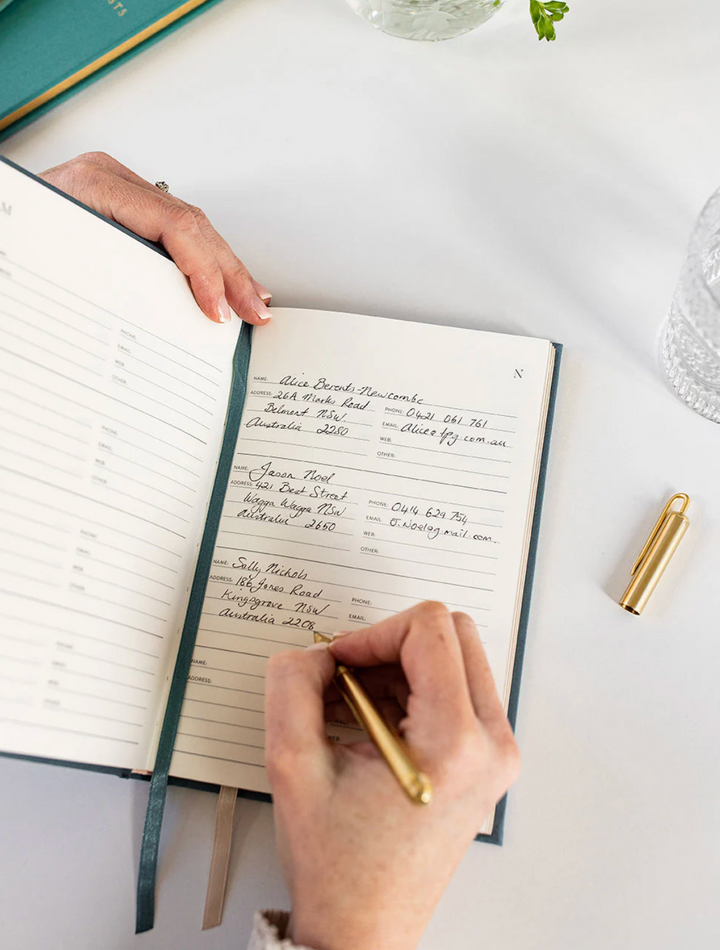 N
NAME: Alice Berents-Newcombe
ADDRESS: 26A Marks Road
Belmont NSW
Australia 2280
PHONE: 0421 061 761
EMAIL: Alice@fpg.com.au
WEB:
OTHER:
NAME: Jason Noel
ADDRESS: 421 Best Street
Wagga Wagga NSW
Australia 2650
PHONE: 0414 629 754
EMAIL: J.Noel@gmail.com
WEB:
OTHER:
NAME: Sally Nichols
ADDRESS: 186 Jones Road
Kingsgrove NSW
Australia 2208
PHONE:
EMAIL:
NAME:
ADDRESS:
PHONE:
EMAIL:
WEB:
OTHER:
PHONE:
EMAIL:
WEB:
OTHER:
PHONE:
EMAIL:
WEB:
OTHER: